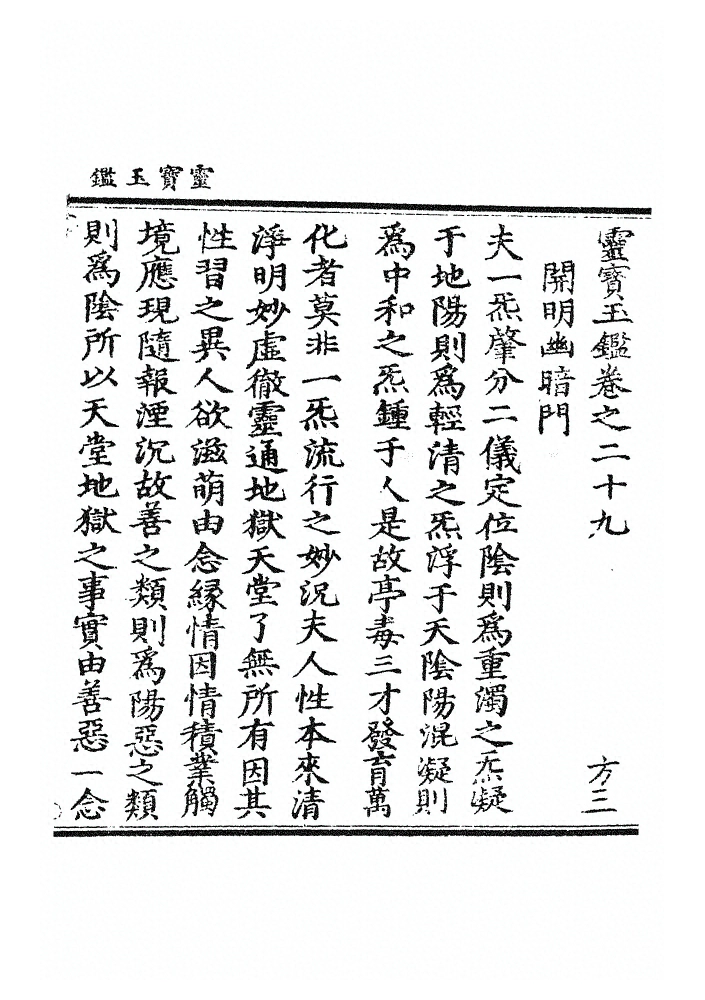 靈寶玉鑑
靈寶玉鑑卷之二十九 方三
開明幽暗門
夫一炁肇分二儀定位陰則爲重濁之炁凝
于地陽則爲輕清之炁浮于天陰陽混凝則
爲中和之炁鍾于人是故亭毒三才發育萬
化者莫非一炁流行之妙況夫人性本來清
淨明妙虛徹靈通地獄天堂了無所有因其
性習之異人欲滋萌由念緣情因情積業觸
境應現隨報湮沉故善之類則爲陽惡之類
則爲陰所以天堂地獄之事實由善惡一念